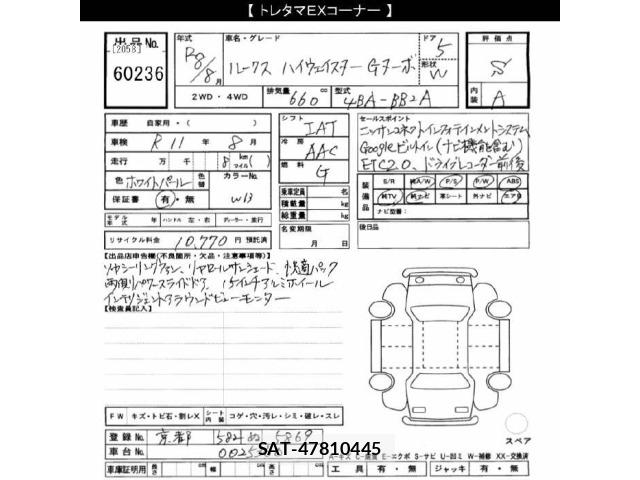 【 トレタマEXコーナー 】
出品No. [2058] 60236
年式 R8/8月
車名・グレード ルークス ハイウェイスター Gターボ
ドア 5
形状 W
評価点 S
内装 A
2WD・4WD
排気量 660 cc
型式 4BA-BB2A
車歴 自家用・( )
車検 R 11 年 8 月
走行 万 千 8 km(マイル)
色 ホワイトパール 色替
カラーNo. W13
保証書 有・無
モデル年式 年 ハンドル 左・右 ディーラー・並行
リサイクル料金 10,770 円 預託済
シフト IAT
冷房 AAC
燃料 G
乗車定員 名
積載量 kg
総重量 kg
名変期限
月 日
セールスポイント
ニッサンコネクトインフォテインメントシステム
Googleビルトイン(ナビ機能含む)
ETC2.0、ドライブレコーダー前後
装備品 S/R A/W P/S P/W ABS
純TV 純ナビ 革シート 外ナビ エアB
ナビ型番:
後日品
【出品店申告欄(不良箇所・欠品・注意事項等)】
リヤシーリングファン、リヤロールサンシェード、快適パック
両側パワースライドドア、15インチアルミホイール
インテリジェントアラウンドビューモニター
【検査員記入】
FW キズ・トビ石・割レX
シート内装 コゲ・穴・汚レ・シミ・破レ・スレ
登録No. 京都 582 5869
車台No.
SAT-47810445
スペア
A-キズ E-エクボ S-サビ U-凹ミ W-補修 XX-交換済
車庫証明用 長さ 幅 高さ
工具 有・無 ジャッキ 有・無